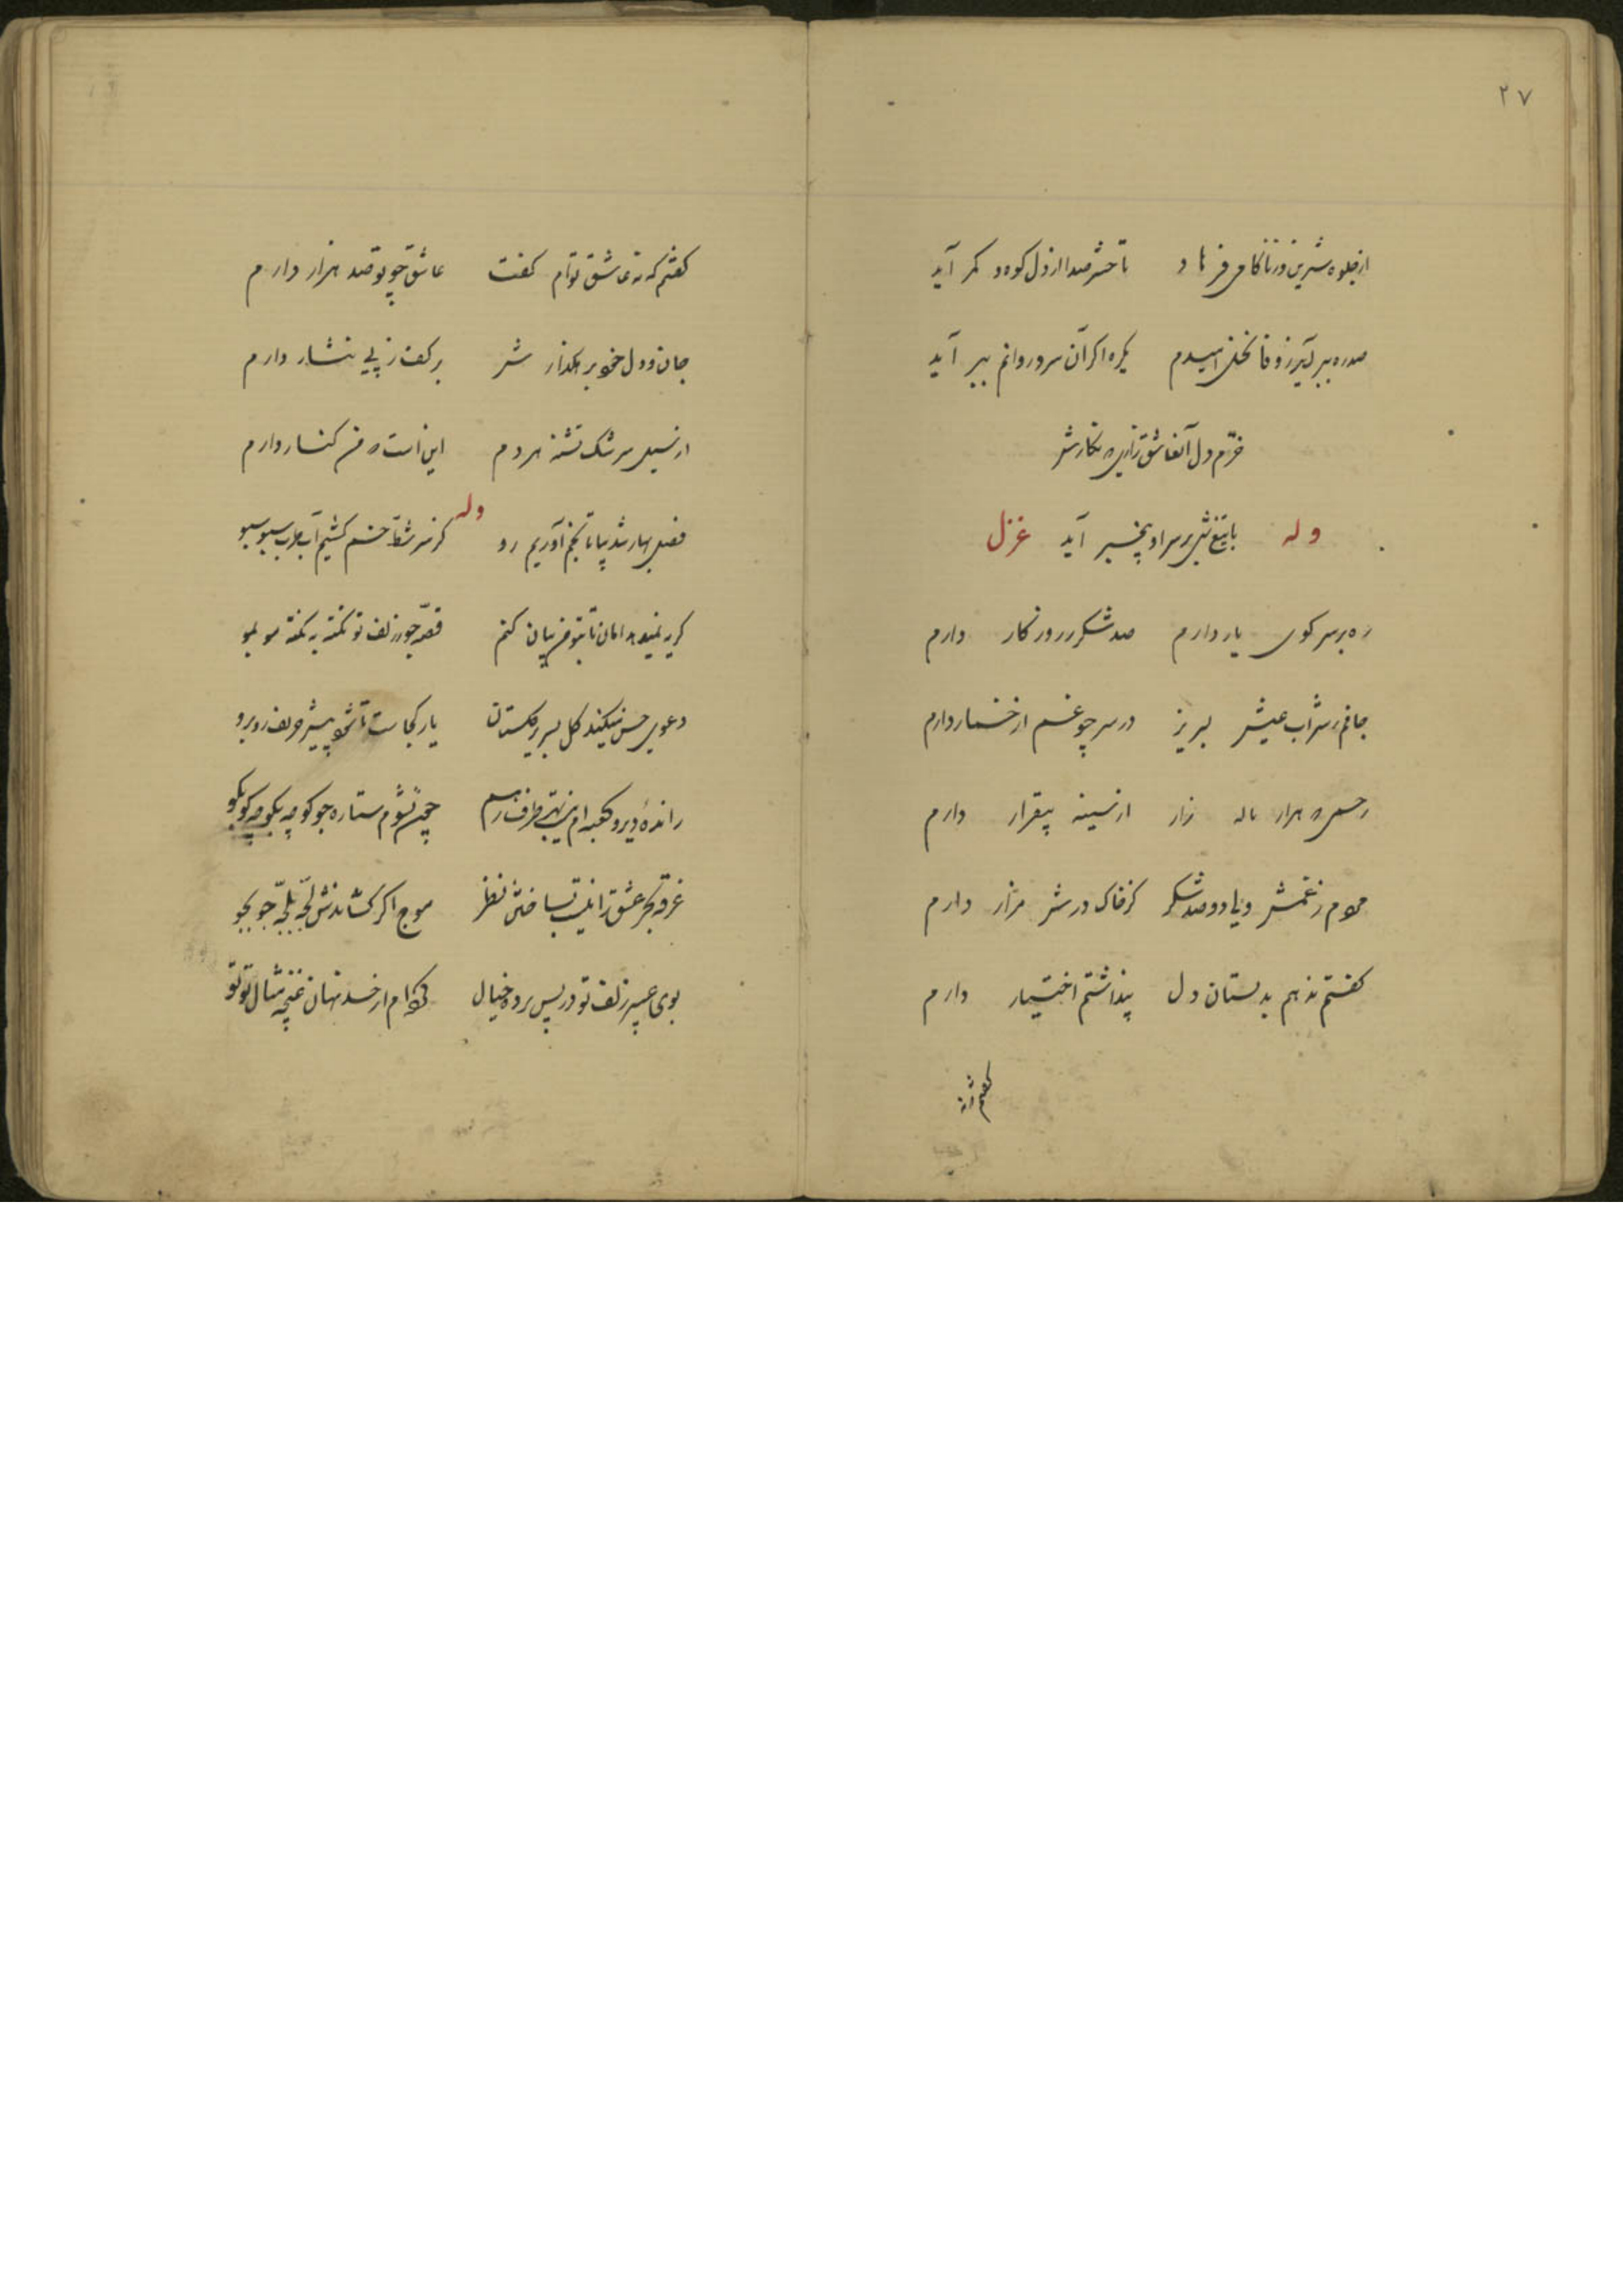 ۲۷
از جلوه شیرین و ز ناکامی فرهاد تا حشر صدا از دل کوه و کمر آید
صد ره ببر آید ز وفا نخل امیدم یکره اگر آن سرو روانم ببر آید
خرم دل آن عاشق زاری که نگارش
وله با تیغ بر سر او بیخبر آید غزل
ره بر سر کوی یار دارم صد شکر ز روزگار دارم
جانم ز شراب عیش لبریز در سر چو غم از خمار دارم
رحمی که هزار ناله زار از سینه بیقرار دارم
مردم ز غمش ولی دو صد شکر کز خاک درش مزار دارم
گفتم ندهم بدلستان دل پنداشتم اختیار دارم
گفتم که
گفتم که نه عاشق توام گفت عاشق چو تو صد هزار دارم
جان و دل خود بر هگذارش بر کف ز پی نثار دارم
از سیل سرشک تشنه مردم این است که من کنار دارم
وله
فصل بهار شد بیا تا بخم آوریم رو کز سر شط خم کشیم آب طرب سبو سبو
گریه نمیدهد امان تا بتو من بیان کنم قصه جور زلف تو نکته به نکته مو بمو
دعوی حسن میکند گل بسریر گلستان یار کجاست تا شود پیش حریف روبرو
رانده دیر و کعبه ام چون نشوم ستاره جو کوچه بکوچه کو بکو
غرقه بحر عشق را نیست بساحلش نظر موج اگر کشاندش لجه بلجه جو بجو
بوی عبیر زلف تو در پس پرده خیال کرده ام از حسد نهان غنچه مثال تو بتو